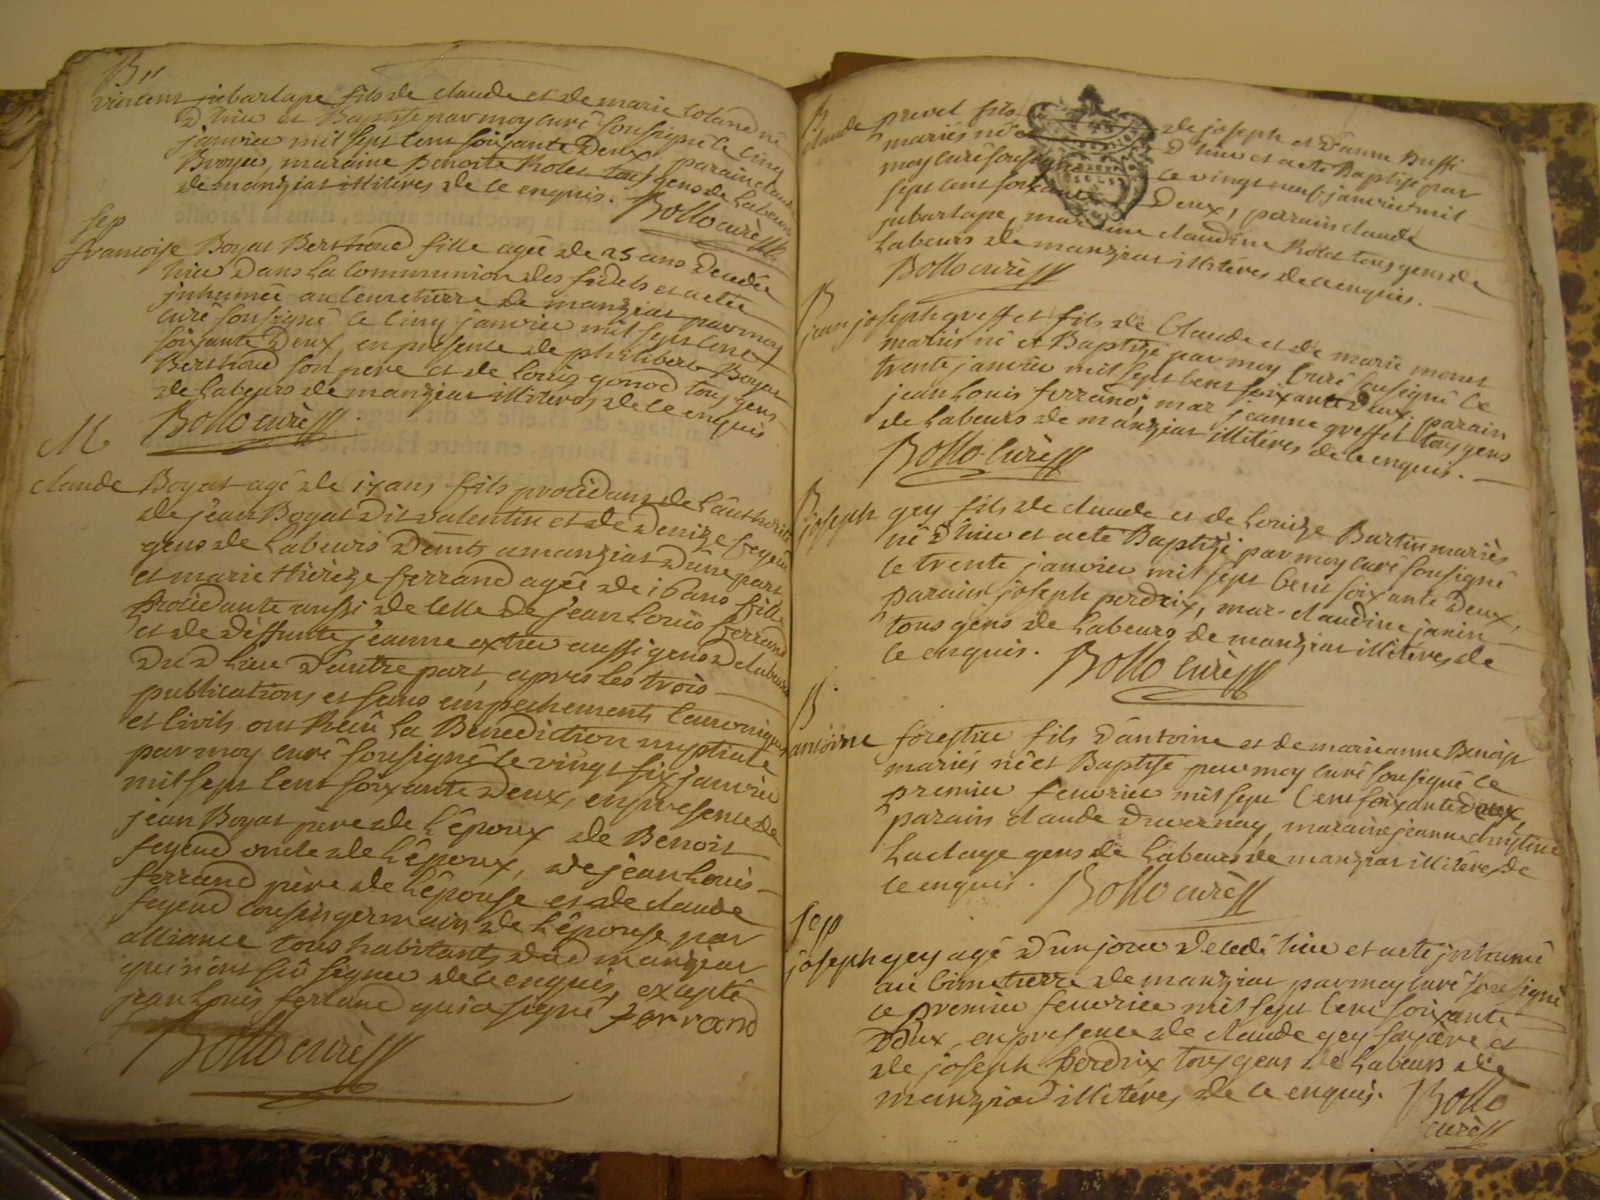 B
vincent jubarlape fils de claude et de marie
d'hier et Baptisé par moy curé sousigné le cinq
janvier mil sept cent soixante Deux, parain claude
Broyer, maraine Benoite Rolet tous gens de Labeurs
de manziat illiteres de ce enquis. Bollo curé
sep
francoise Boyat Berthoud fille agée de 25 ans Decedée
hier Dans La Communion des fidels et a eté
inhumée au Cemetierre de manziat par moy
curé sousigné le Cinq janvier mil sept cent
soixante Deux, en presence de philibert Boyat
Berthoud son pere et de Louis gonod tous gens
de Labeurs de manziat illiteres de ce enquis
Bollo curé
M
claude Boyat agé de 17 ans fils procedant de L'authorité
de jean Boyat Dit valentin et de Denize feyeud
gens de Labeurs Demts a manziat D'une part
et marie thérèze ferrand agée de 16 ans fille
procedante aussi de Celle de jean Louis ferrand
et de Déffunte jeanne aussi gens de Labeurs
Du d Lieu D'autre part, apres Les trois
publications et sans empechements Canoniques
et Civils ont Reçû La Bénediction nuptiale
par moy curé sousigné le vingt six janvier
mil sept Cent soixante Deux, en presence de
jean Boyat pere de L'époux de Benoit
feyeud oncle de L'époux, de jean Louis
ferrand père de L'épouse et de claude
feyeud cousin germain de L'épouse par
alliance tous habitants dud manziat
qui n'ont sçû signer de ce enquis, excepté
jean Louis ferrand qui a signé, ferrand
Bollo curé
B
claude prevel fils de joseph et D'anne Buffi
mariés né D'hier et a eté Baptisé par
moy curé sousigné Le vingt neuf janvier mil
sept cent soixante Deux, parain claude
jubarlape, maraine claudine Rolet tous gens de
Labeurs de manziat illiteres de ce enquis.
Bollo curé
B
jean joseph greffet fils de Claude et de marie monet
mariés né et Baptizé par moy Curé sousigné le
trente janvier mil sept Cent soixante Deux, parain
jean Louis ferrand, mar jeanne greffet tous gens
de Labeurs de manziat illiteres de ce enquis.
Bollo Curé
B
joseph gey fils de claude et de Louize Burtin mariés
né D'hier et a eté Baptizé par moy Curé sousigné
le trente janvier mil sept Cent soixante Deux,
parain joseph perdrix, mar. claudine janin
tous gens de Labeurs de manziat illiteres de
ce enquis. Bollo Curé
B
antoine forestier fils D'antoine et de marie anne Benoist
mariés né et Baptisé par moy Curé sousigné le
premier fevrier mil sept Cent soixante Deux,
parain claude Duvernay, maraine jeanne christine
gens de Labeurs de manziat illiteres de
ce enquis. Bollo curé
sep
joseph gey agé D'un jour decedé hier et a eté inhumé
au Cimetierre de manziat par moy Curé sousigné
le premier fevrier mil sept Cent soixante
Deux, en presence de claude gey son père et
de joseph perdrix tous gens de Labeurs de
manziat illiteres de ce enquis. Bollo
curé